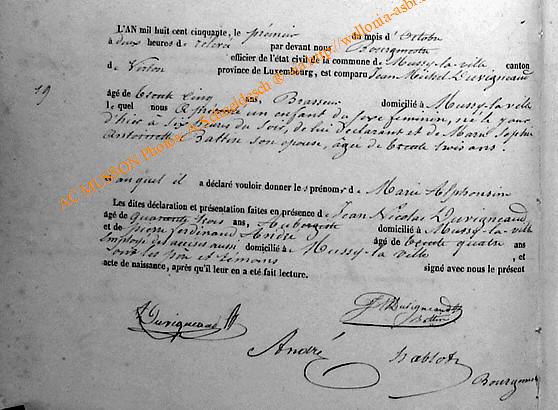 L'AN mil huit cent cinquante, le premier du mois d'Octobre
à deux heures de relevée par devant nous Bourgmestre
officier de l'état civil de la commune de Mussy-la-ville canton
de Virton province de Luxembourg, est comparu Jean Michel Duvigneaud
19
âgé de trente cinq ans, Brasseur domicilié à Mussy-la-ville
lequel nous a présenté un enfant du sexe féminin, né le jour
d'hier à six heures du soir, de lui déclarant et de Marie Sophie
Antoinette Battin son épouse, âgée de trente trois ans.
auquel il a déclaré vouloir donner les prénoms de Marie Alphonsine
Les dites déclaration et présentation faites en présence de Jean Nicolas Duvigneaud,
âgé de quarante trois ans, Aubergiste domicilié à Mussy-la-ville
et de pierre ferdinand André âgé de trente quatre ans
Employé des accises aussi domicilié à Mussy-la-ville , et
signé avec nous le présent
acte de naissance, après qu'il leur en a été fait lecture.
Duvigneaud
Duvigneaud
Battin
André
Bourgmestre
AC MUSSON Photos: A. Schneidesch @ http://wallonia-asbl